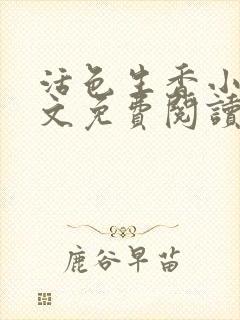 活色生香小
文免費閱讀
鹿谷早苗